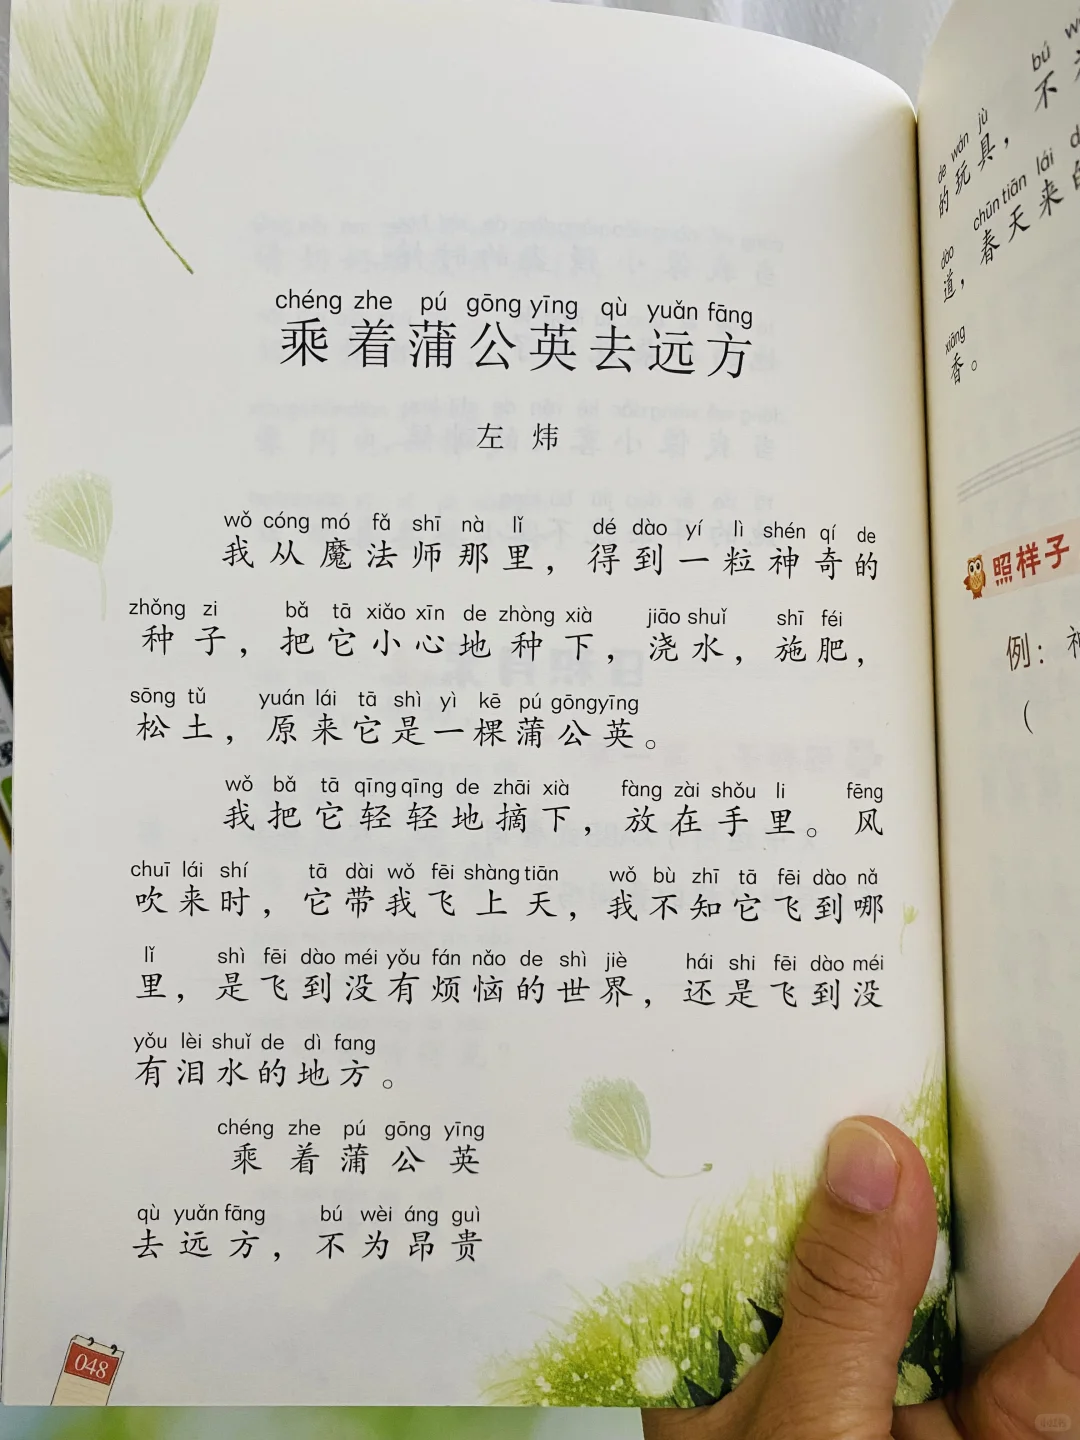 chéng zhe pú gōng yīng qù yuǎn fāng
乘着蒲公英去远方
左炜
wǒ cóng mó fǎ shī nà lǐ dé dào yí lì shén qí de
我从魔法师那里，得到一粒神奇的
zhǒng zi bǎ tā xiǎo xīn de zhòng xià jiāo shuǐ shī féi
种子，把它小心地种下，浇水，施肥，
sōng tǔ yuán lái tā shì yì kē pú gōng yīng
松土，原来它是一棵蒲公英。
wǒ bǎ tā qīng qīng de zhāi xià fàng zài shǒu li fēng
我把它轻轻地摘下，放在手里。风
chuī lái shí tā dài wǒ fēi shàng tiān wǒ bù zhī tā fēi dào nǎ
吹来时，它带我飞上天，我不知它飞到哪
lǐ shì fēi dào méi yǒu fán nǎo de shì jiè hái shi fēi dào méi
里，是飞到没有烦恼的世界，还是飞到没
yǒu lèi shuǐ de dì fang
有泪水的地方。
chéng zhe pú gōng yīng
乘着蒲公英
qù yuǎn fāng bú wèi áng guì
去远方，不为昂贵
048
bú
不
de wán jù
的玩具，
chūn tiān lái
春天来的
dào
道，
xiāng
香。
照样子
例：
（
小红书